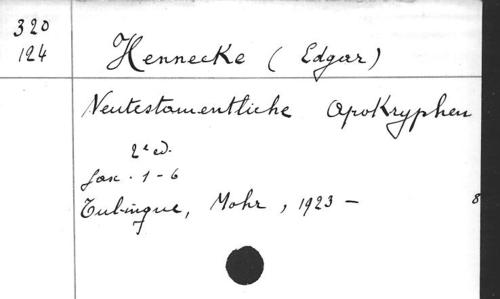 320
124
Hennecke (Edgar)
Neutestamentliche Apokryphen
2e ed.
fasc. 1-6
Tubingue, Mohr, 1923 - 8